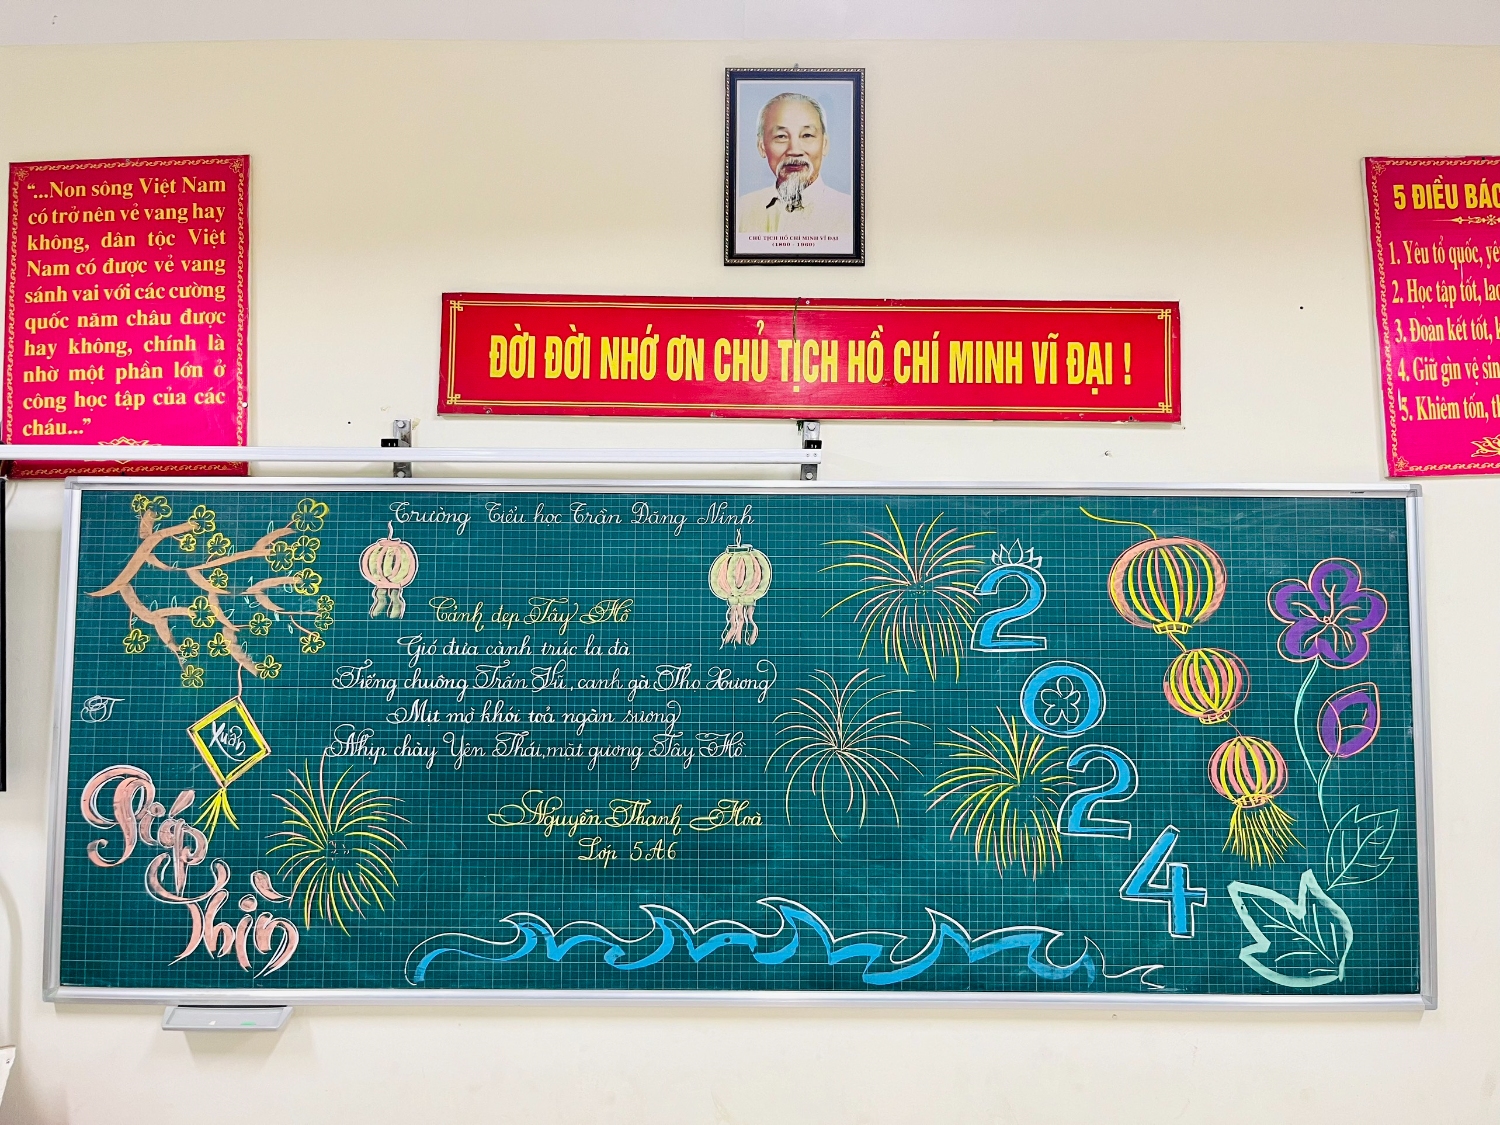 "...Non sông Việt Nam
có trở nên vẻ vang hay
không, dân tộc Việt
Nam có được vẻ vang
sánh vai với các cường
quốc năm châu được
hay không, chính là
nhờ một phần lớn ở
công học tập của các
cháu..."
CHỦ TỊCH HỒ CHÍ MINH VĨ ĐẠI
(1890 - 1969)
ĐỜI ĐỜI NHỚ ƠN CHỦ TỊCH HỒ CHÍ MINH VĨ ĐẠI !
5 ĐIỀU BÁC
1. Yêu tổ quốc, yê
2. Học tập tốt, lao
3. Đoàn kết tốt, k
4. Giữ gìn vệ sin
5. Khiêm tốn, th
Trường Tiểu học Trần Đăng Ninh
Cảnh đẹp Tây Hồ
Gió đưa cành trúc la đà
Tiếng chuông Trấn Vũ, canh gà Thọ Xương
Mịt mờ khói toả ngàn sương
Nhịp chày Yên Thái, mặt gương Tây Hồ.
Nguyễn Thanh Hoà
Lớp 5A6
Xuân
Giáp
Thìn
2024